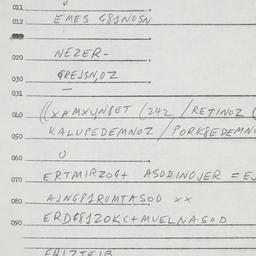 011
012 EMES G81NOSN
020 NEZER-
030 GREJSN,OZ
031
040 ((XAMXUNBET (242 / RETINOZ (
050 KALUPEDEMNOZ / PORK8EDEMN
060 U
070 ERTMIRZOG+ ASODINOJER = EJ
080 AJNGP1RUMTASOD xx
090 ERDG81ZOKC+MUELNASOD